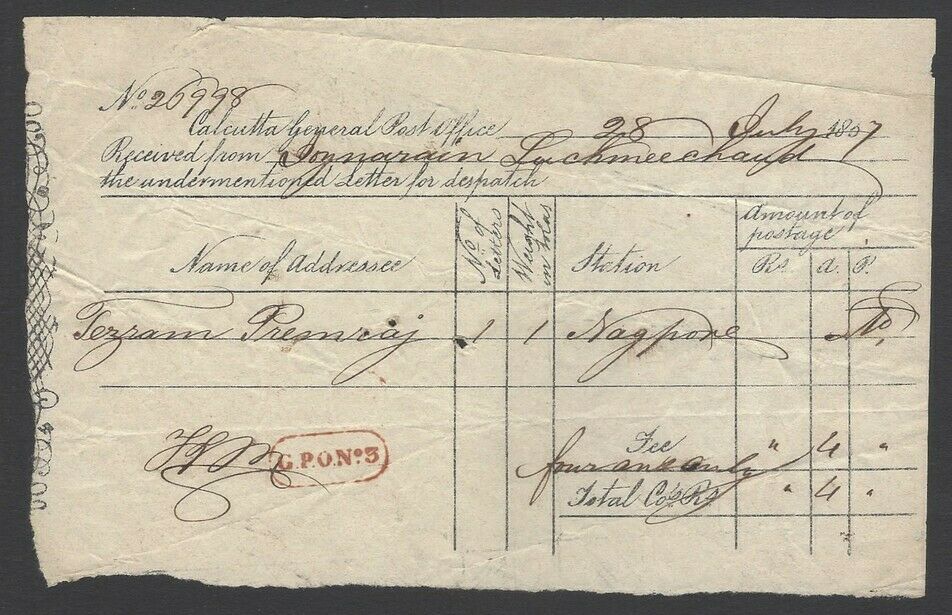 No. 26998
Calcutta General Post Office 28 July 1857
Received from Joynarain Luchmeechand
the undermentioned Letter for despatch
Name of Addressee No. of Letters Weight in tolas Station Amount of postage
Rs. A. P.
Tezram Premraj 1 1 Nagpore
G.P.O. No. 3
Fee " 4 "
four ans only
Total Co's Rs. " 4 "